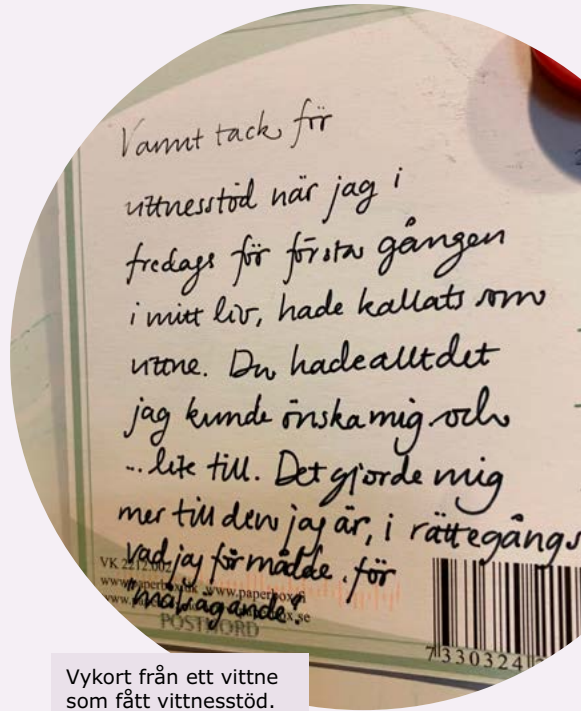 Varmt tack för
vittnesstöd när jag i
fredags för första gången
i mitt liv, hade kallats som
vittne. Du hade allt det
jag kunde önska mig och
... lite till. Det gjorde mig
mer till den jag är, i rättegångs
vad jag förmådde för
"målsägande".
VK 2212.002
www.paperbox.dk www.paperbox.fi
POSTNORD
7 330324
Vykort från ett vittne
som fått vittnesstöd.